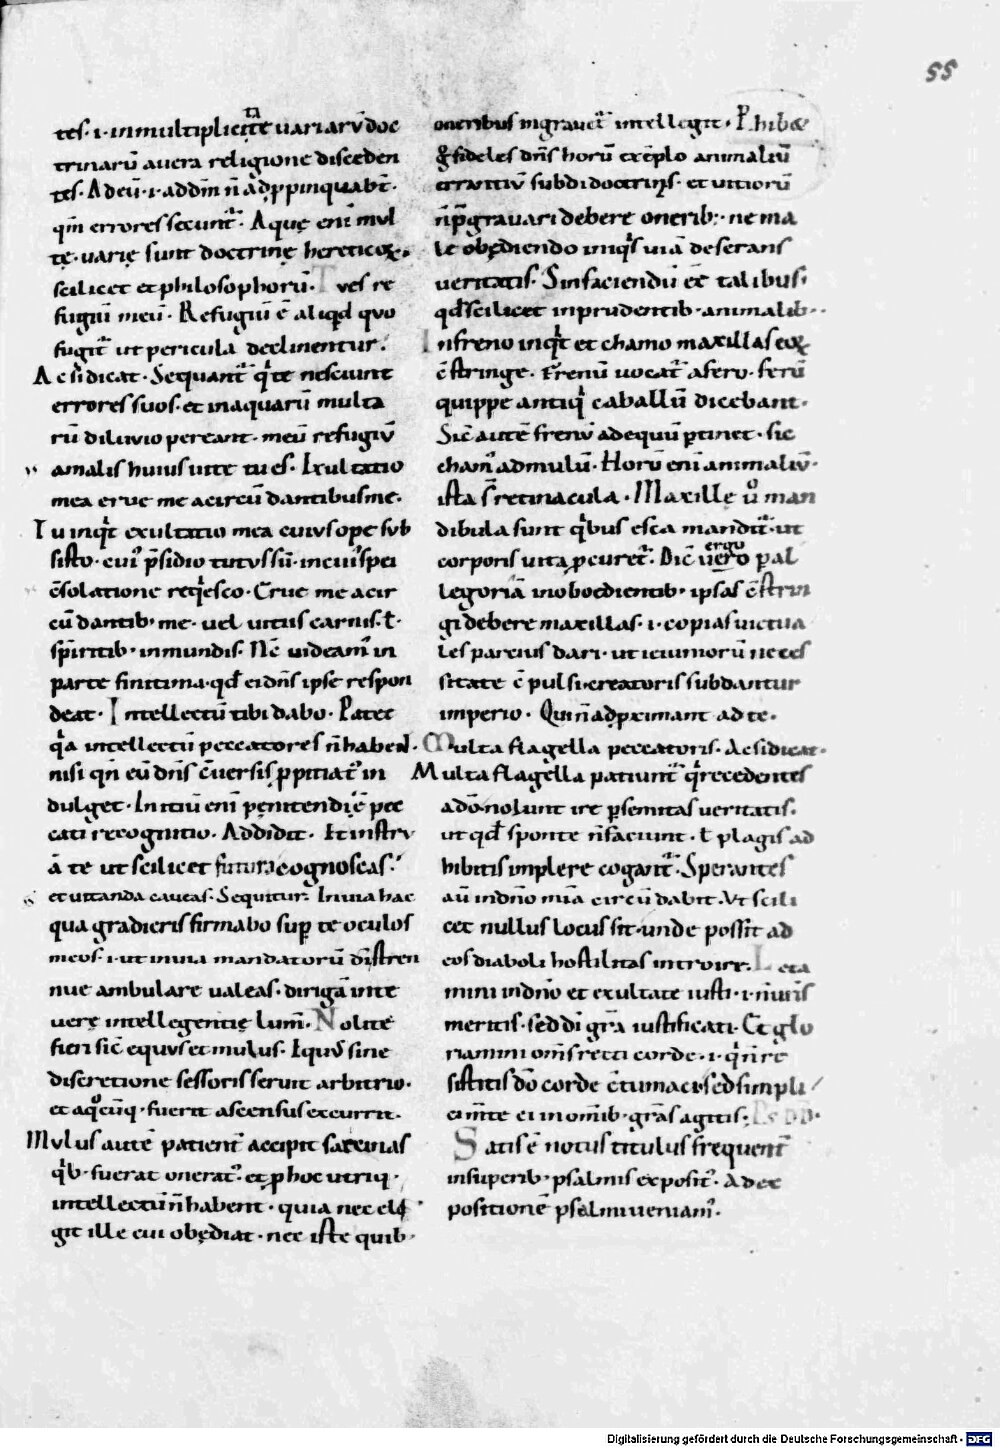 55
tes· i· inmultiplicitate variarū doc
trinarū avera religione disceden
tes. Adeū· i· addm̄ n̄ adpropinquabt̄·
qm̄ errores secunt̄. Aquę eni mul
tę· varię sunt doctrinę hereticoꝝ·
scilicet et philosophorū. Tu es re
fugiū meū· Refugiū ē aliqd quo
fugit̄ ut pericula declinentur.
Ac si dicat· Sequant̄ q̄ te nesciunt
errores suos· et inaquarū multa
rū diluvio pereant· meū refugiū
amalis huius vite tu es. Exultatio
mea erue me acircū dantibus me·
Tu inqt exultatio mea cuius ope sub
sisto· cui' p̄sidio tutus sū· incui' spei
c̄solatione reqesco· Erue me acir
cū dantib· me· vel vitiis carnis· ł·
sp̄iritib· inmundis. Nc̄ videam' in
parte finitima· qd ei dn̄s ipse respon
deat· Intellectū tibi dabo. Patet
qa intellectū peccatores n̄ habent.
nisi qn̄ eū dn̄s c̄versis ppitiat' in
dulget· Initiū eni pęnitendi ē pec
cati recognitio. Addidit· Et instru
ā te ut scilicet futura cognoscas.
et vitanda caveas. Sequitur. In via hac
qua gradieris firmabo sup te oculos
meos· i· ut in via mandatorū di stren
nue ambulare valeas· dirigā in te
verę intellegentię lum̄. Nolite
fieri sic̄ equus et mulus· Equus sine
discretione sessoris servit arbitrio·
et aqocūq· fuerit ascensus excurrit·
Mulus autē patient̄ accipit sarcinas
qb· fuerat onerat'. et p hoc utriq·
intellectū n̄ habent· quia nec eli
git ille cui obędiat· nec iste quib·
oneribus ingravet̄ intellegit· Phibet
g fideles dn̄s horū exēplo animaliū
errantiū subdi doctrinis· et vitiorū
n̄ p̄gravari debere onerib:· ne ma
le obędiendo iniqs viā deserans
veritatis· Sin faciendū eē talibus·
qd scilicet inprudentib· animalib·
Infreno inqt et chamo maxillas eoꝝ
c̄stringe· Frenū vocat̄ afero· ferū
quippe antiqi caballū dicebant·
Sic̄ autē frenū adequū ptinet· sic
cham' admulū· Horū eni animaliū·
ista st̄ retinacula· Maxillę uo man
dibula sunt qbus esca mandit̄· ut
corporis vita pcuret̄. Dic̄ ergo vero p al
legoriā inoboedientib· ipsas c̄strin
gi debere maxillas· i· copias victua
les parcius dari· ut ieiuniorū neces
sitate c̄pulsi· creatoris subdantur
imperio· Qui n̄ adpximant ad te·
Multa flagella peccatoris. Ac si dicat·
Multa flagella patiunt̄ q recedentes
ado· nolunt ire p semitas veritatis·
ut qd sponte n̄ faciunt· ł plagis ad
hibitis implere cogant̄. Sperantes
aū indn̄o mīa circū dabit. Ut scili
cet nullus locus sit· unde possit ad
eos diaboli hostilitas introire. Leta
mini indn̄o et exultate iusti· i· n̄ vr̄is
meritis· sed di gr̄a iustificati· Et glo
riamini om̄s recti corde· i· q n̄ re
sistitis dō corde c̄tumaci· sed simpli
cim̄te ei in omīb· gr̄as agitis· Ps DD·
Satis ē notus titulus frequent̄
insuperib· psalmis exposit'. Ad ex
positionē psalmi veniam'.
Digitalisierung gefördert durch die Deutsche Forschungsgemeinschaft - DFG